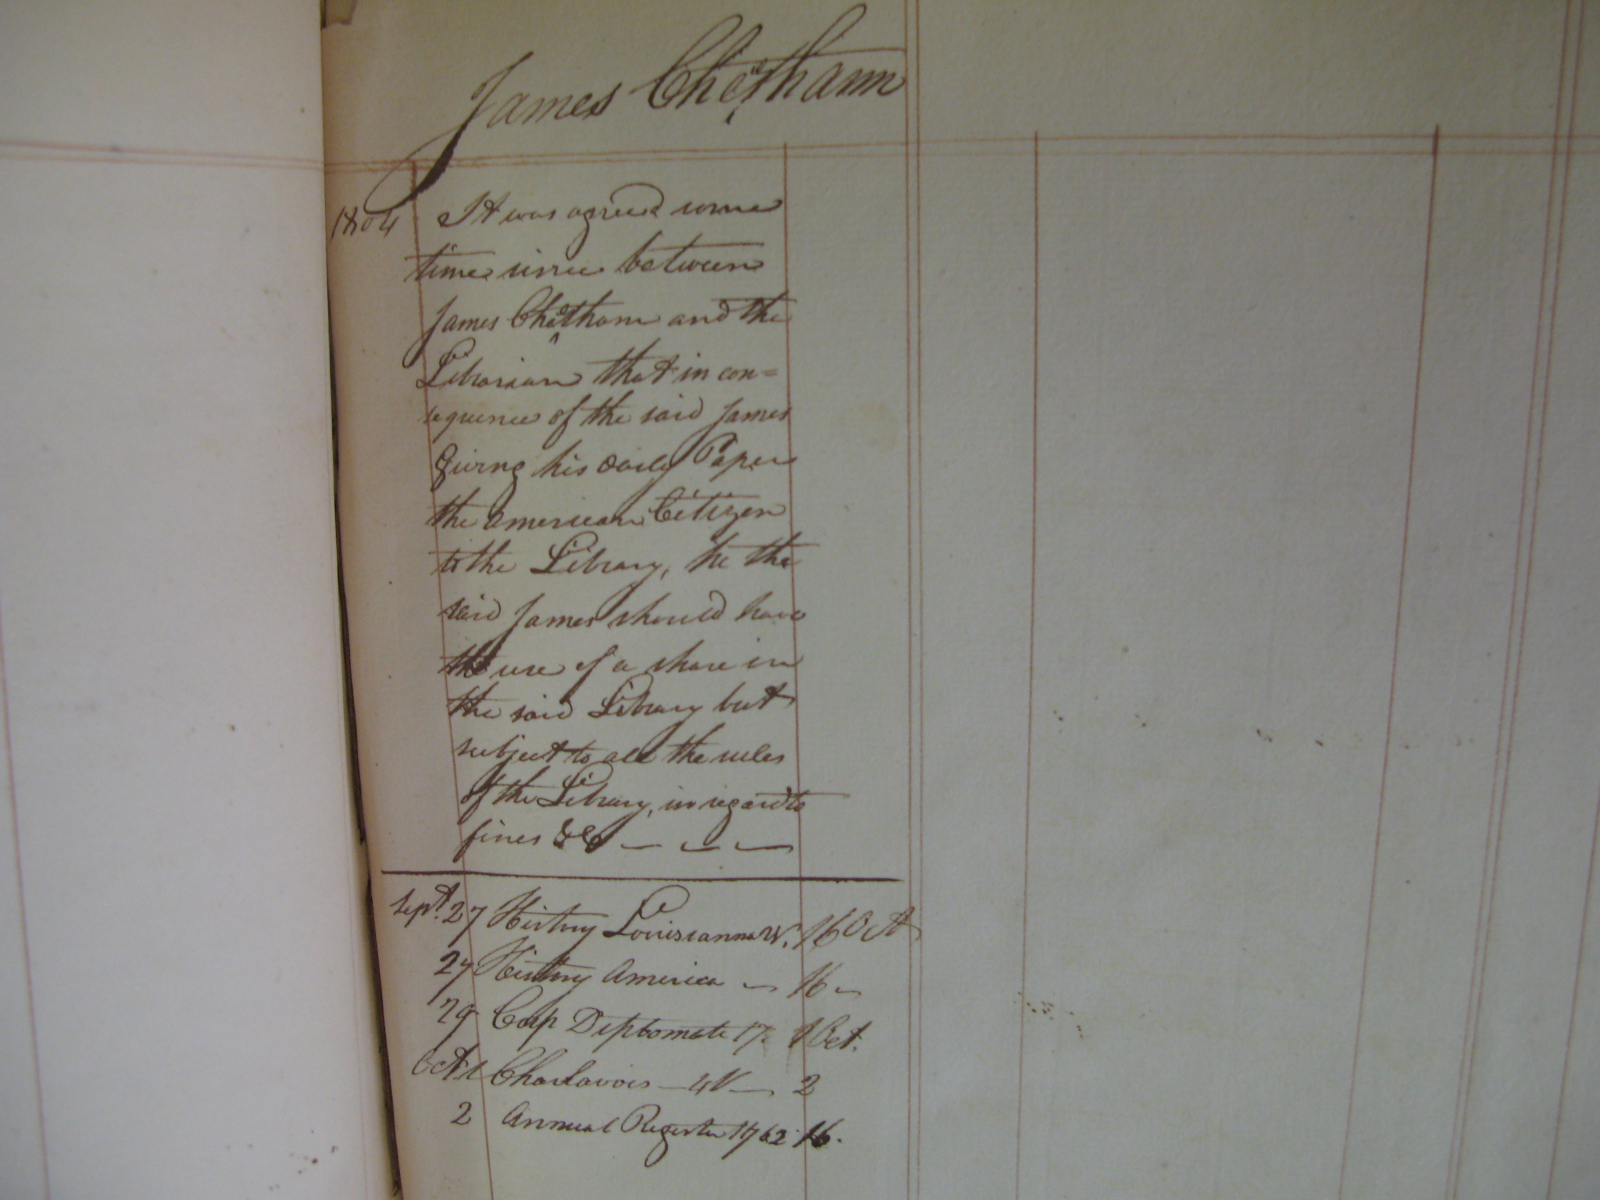 James Cheetham
1804 It was agreed some
time since between
James Cheetham and the
Librarian that in con=
sequence of the said James
giving his daily Paper
the American Citizen
to the Library, he the
said James should have
the use of a share in
the said Library but
subject to all the rules
of the Library, in regard to
fines &c — — —
Sept. 27 History Louisianna 16 Oct
27 History America — 16 —
29 Corp Diplomate 1 Oct.
Oct 1 Charlavois — 4V — 2
2 Annual Register 1762 16.